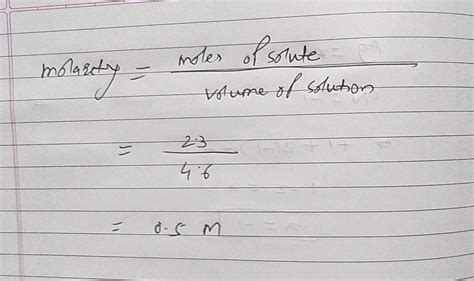 molarity = moles of solute / volume of solution
= 2.3 / 4.6
= 0.5 M